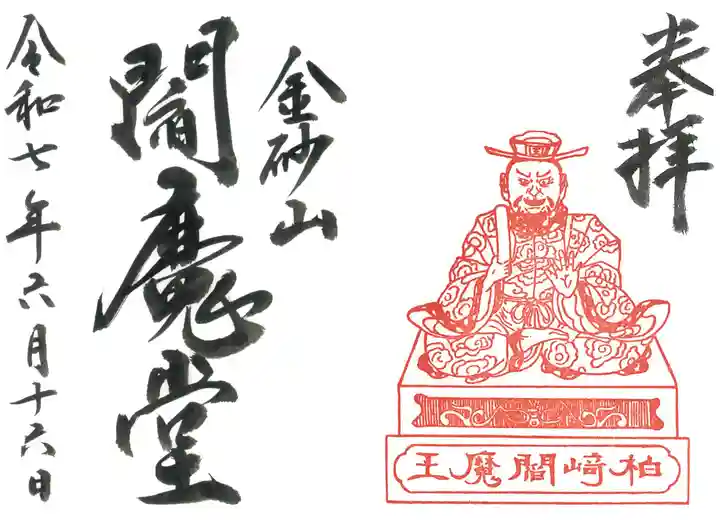 奉拝
柏﨑閻魔王
金砂山
閻魔堂
令和七年六月十六日